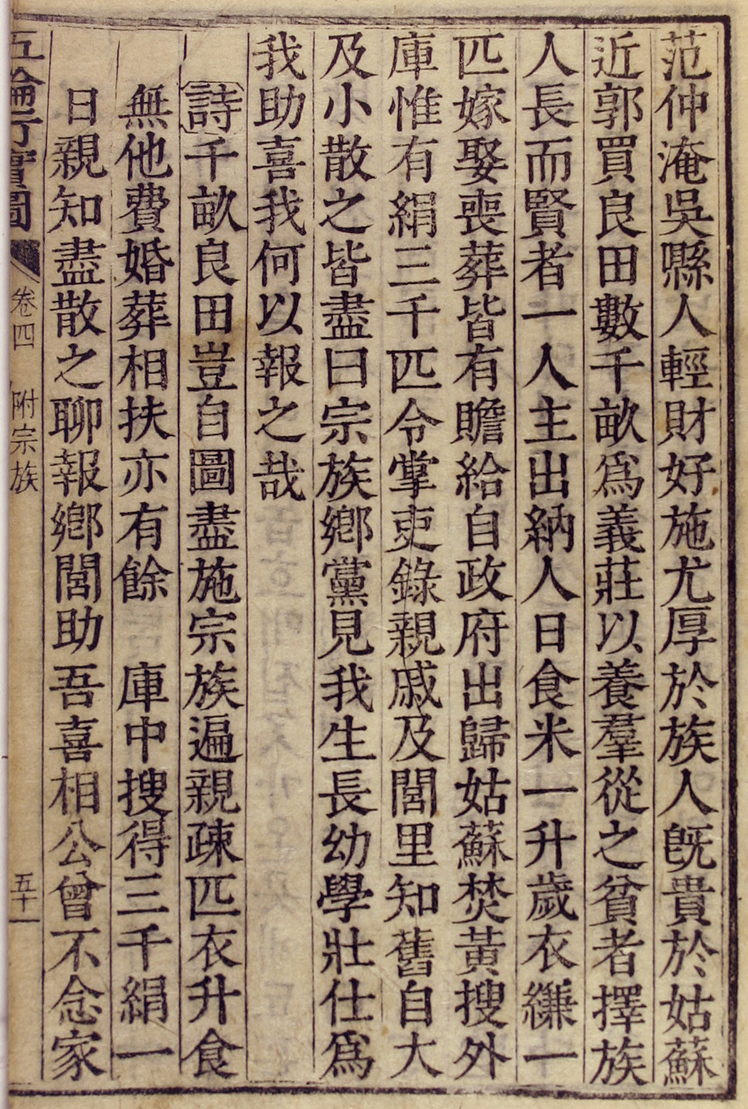 范仲淹吳縣人輕財好施尤厚於族人旣貴於姑蘇
近郭買良田數千畝爲義莊以養羣從之貧者擇族
人長而賢者一人主出納人日食米一升歲衣縑一
匹嫁娶喪葬皆有贍給自政府出歸姑蘇焚黃搜外
庫惟有絹三千匹令掌吏錄親戚及閭里知舊自大
及小散之皆盡曰宗族鄕黨見我生長幼學壯仕爲
我助喜我何以報之哉
詩千畝良田豈自圖盡施宗族遍親疎匹衣升食
無他費婚葬相扶亦有餘 庫中搜得三千絹一
日親知盡散之聊報鄕閭助吾喜相公曾不念家
五倫行實圖 卷四 附宗族 五十一